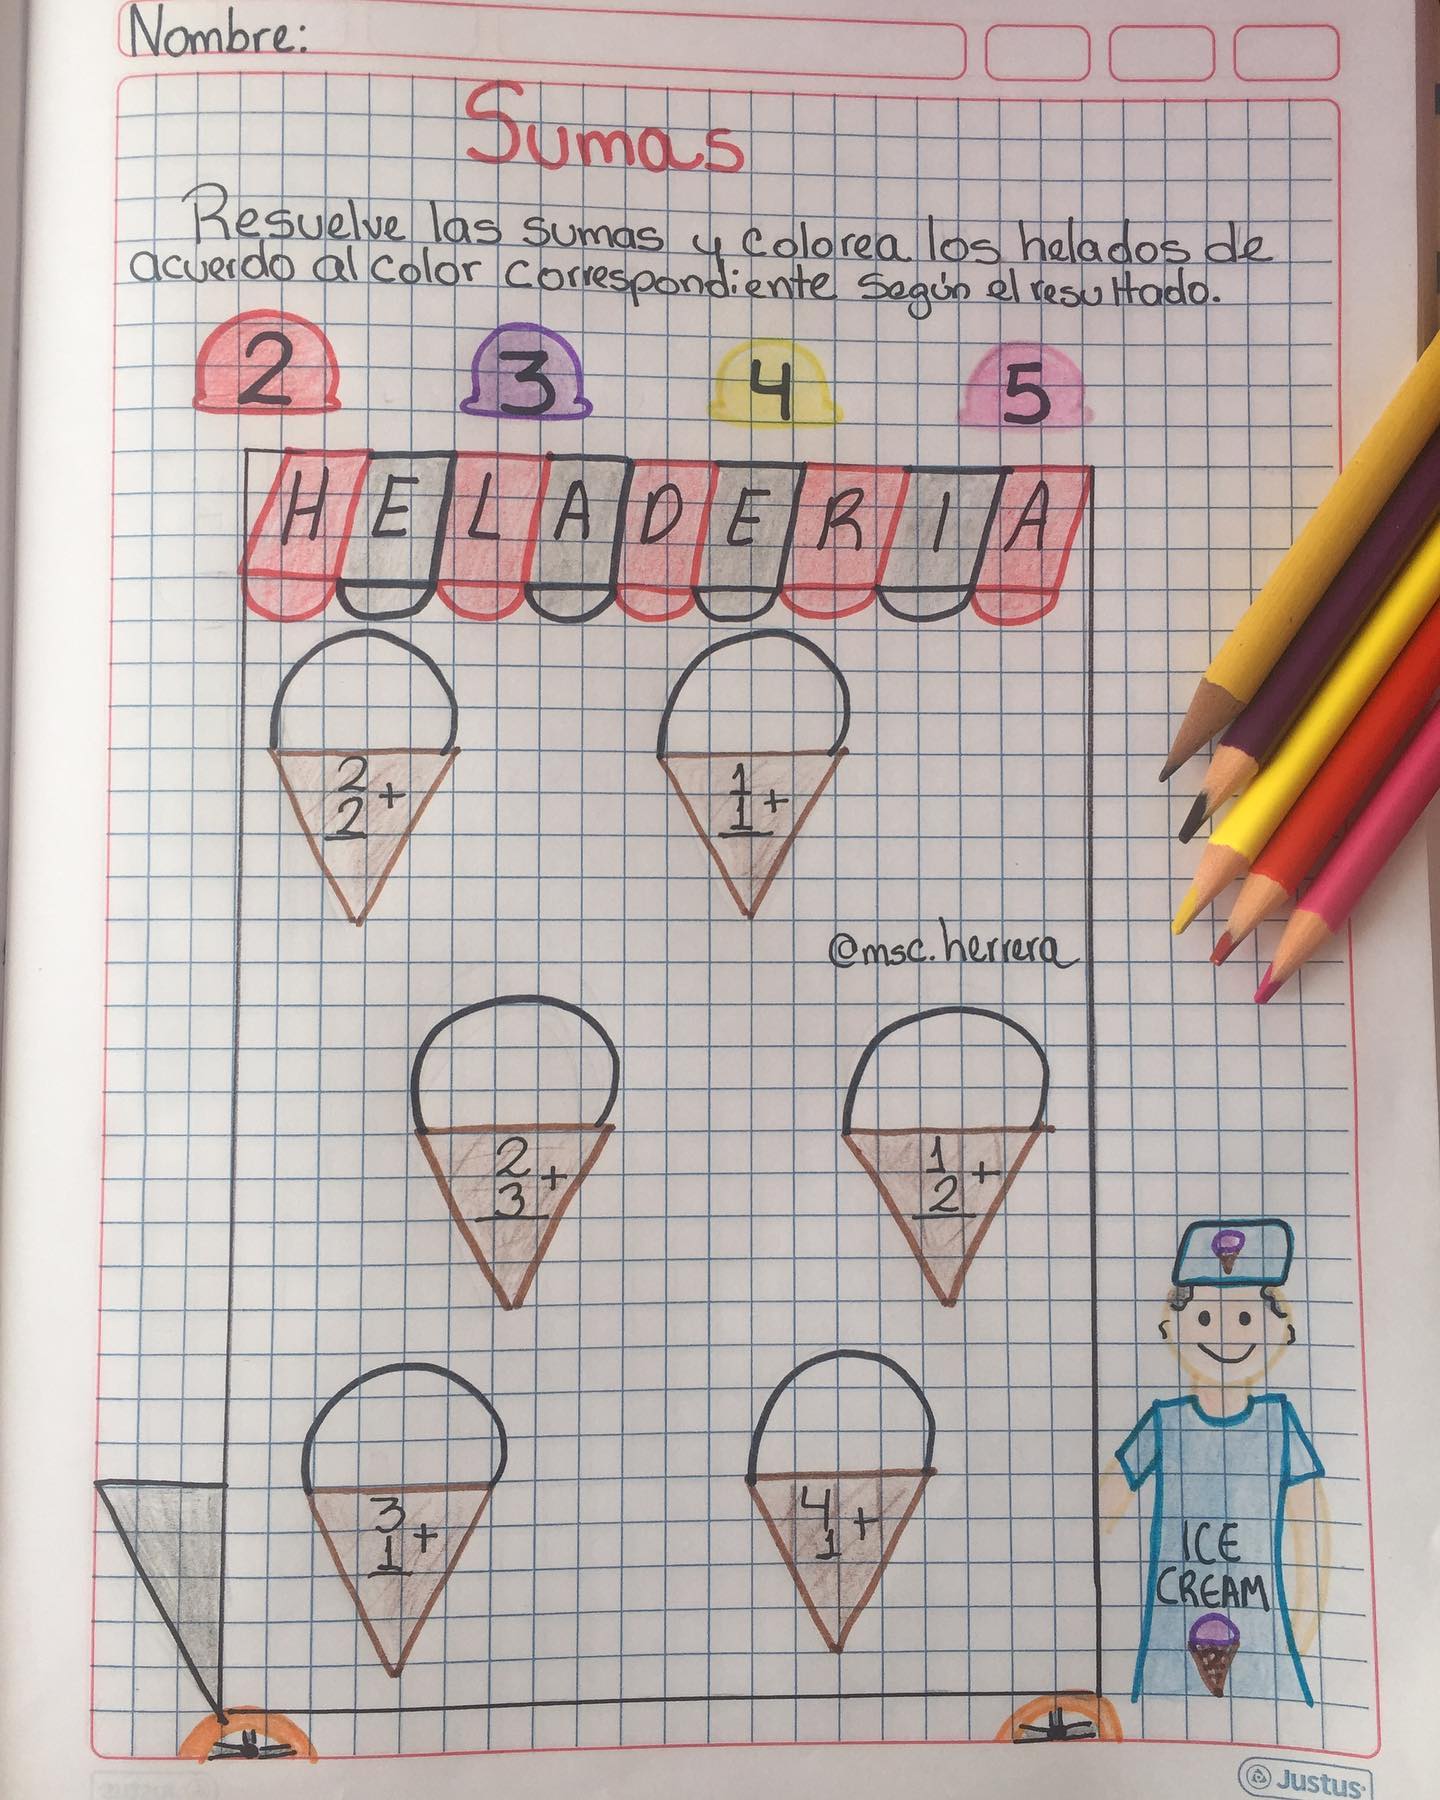 Nombre:
Sumas
Resuelve las sumas y colorea los helados de
acuerdo al color correspondiente según el resultado.
2 3 4 5
HELADERIA
2 + 1 +
2 1
@msc.herrera
2 + 1 +
3 2
3 + 4 +
1 1
ICE
CREAM
Justus